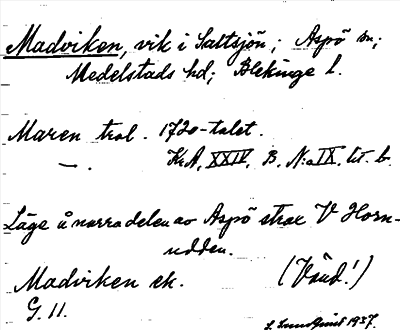 Madviken, vik i Saltsjön; Aspö sn;
Medelstads hd; Blekinge l.
Maren trol. 1720-talet.
—. KrA, XXIV, B. N:o IX. lit. b.
Läge å norra delen av Aspö strax V Horn-
udden.
Madviken ek. (Vänd!)
G. 11.
S. Lundquist 1937.